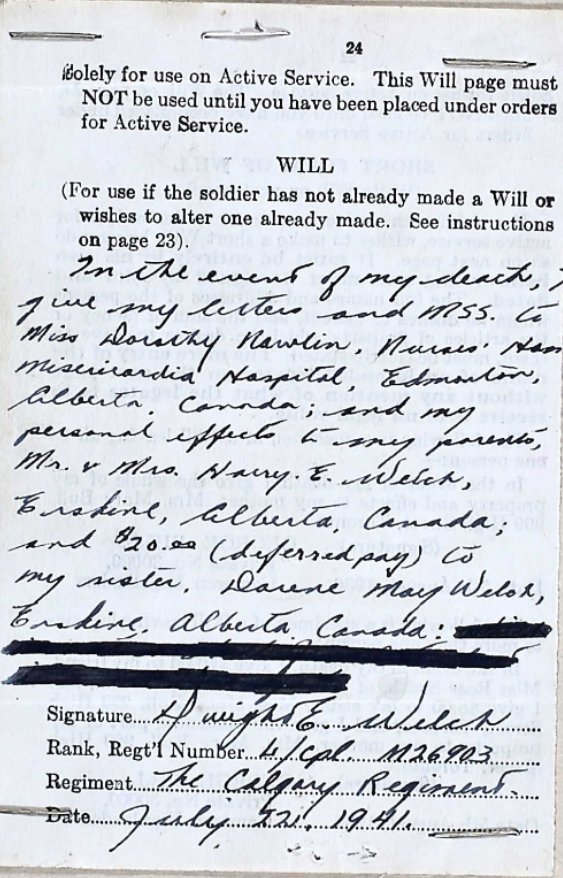 24
solely for use on Active Service. This Will page must
NOT be used until you have been placed under orders
for Active Service.
WILL
(For use if the soldier has not already made a Will or
wishes to alter one already made. See instructions
on page 23).
In the event of my death I
give my letters and MSS. to
Miss Dorothy Nawlin, Nurses Home
Misericordia Hospital, Edmonton,
Alberta, Canada; and my
personal effects to my parents,
Mr. & Mrs. Harry E. Welch,
Erskine, Alberta, Canada;
and $20.00 (deferred pay) to
my sister, Dorene May Welch,
Erskine, Alberta, Canada.
Signature Dwight E. Welch
Rank, Regt'l Number L/Cpl. M26903
Regiment The Calgary Regiment.
Date July 21, 1941.